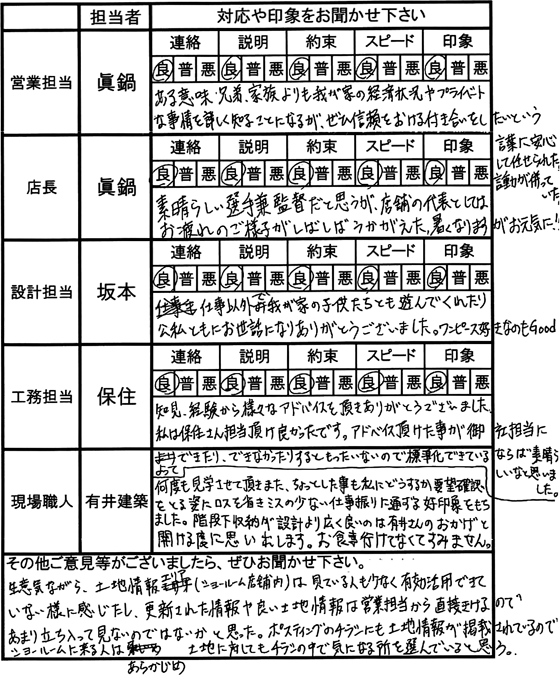 担当者 対応や印象をお聞かせ下さい
営業担当 眞鍋
連絡 説明 約束 スピード 印象
良 普 悪 良 普 悪 良 普 悪 良 普 悪 良 普 悪
ある意味、兄弟、家族よりも我が家の経済状況やプライベート
な事情を詳しく知ることになるが、ぜひ信頼をおける付き合いをしたいという
言葉に安心
して任せられた。
言動が伴って
いた。
店長 眞鍋
連絡 説明 約束 スピード 印象
良 普 悪 良 普 悪 良 普 悪 良 普 悪 良 普 悪
素晴らしい選手兼監督だと思うが、店舗の代表としては
お疲れのご様子がしばしばうかがえた。暑くなりますがお元気に!!
設計担当 坂本
連絡 説明 約束 スピード 印象
良 普 悪 良 普 悪 良 普 悪 良 普 悪 良 普 悪
仕事以外で我が家の子供たちとも遊んでくれたり
公私ともにお世話になりありがとうございました。ワンピース好きなのもGood
工務担当 保住
連絡 説明 約束 スピード 印象
良 普 悪 良 普 悪 良 普 悪 良 普 悪 良 普 悪
知見、経験から様々なアドバイスを頂きありがとうございました。
私は保住さん担当頂け良かったです。アドバイス頂けた事が御社担当に
よってできたり、できなかったりするともったいないので標準化できている
ならば素�ら
しいなと思いま
した。
現場職人 有井建築
何度も見学させて頂きまた、ちょっとした事も私にどうするか要望確認
をとる姿にロスを省きミスの少ない仕事振りに通ずる好印象をもち
ました。階段下収納が設計より広く良いのは有井さんのおかげと
開ける度に思い出します。お食事付けでなくてすみません。
その他ご意見等がございましたら、ぜひお聞かせ下さい。
生意気ながら、土地情報エリア(ショールーム店舗内)は見ている人も少なく有効活用できて
いない様に感じたし、更新された情報や良い土地情報は営業担当から直接きけるので
あまり立ち入って見ないのではないかと思った。ポスティングのチラシにも土地情報が掲載されているので
ショールームに来る人はあらかじめ 土地に対してもチラシの中で気になる所を選んでいると思う。